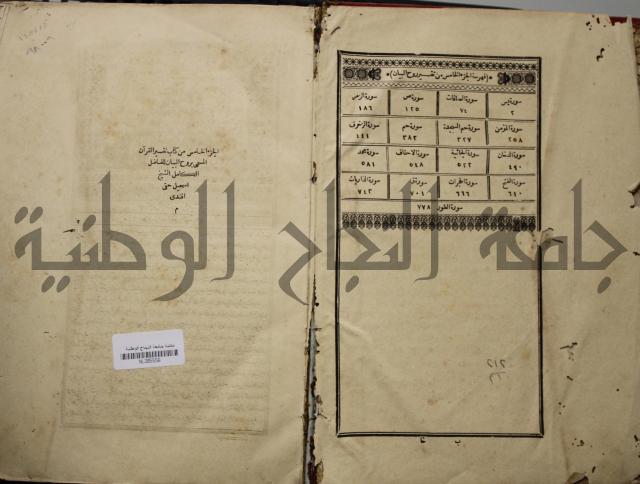 (فهرسة الجزء الخامس من تفسير روح البيان)
سورة يس سورة الصافات سورة ص سورة الزمر
٢ ٧٤ ١٢٥ ١٨٦
سورة المؤمن سورة حم السجدة سورة حم سورة الزخرف
٢٥٨ ٣٢٧ ٣٨٢ ٤٤١
سورة الدخان سورة الجاثية سورة الاحقاف سورة محمد
٤٩٠ ٥٢٢ ٥٤٨ ٥٨١
سورة الفتح سورة الحجرات سورة ق سورة الذاريات
٦١٠ ٦٦٦ ٧٠٤ ٧٤٣
سورة الطور ٧٧٨
الجزء الخامس من كتاب تفسير القرآن
المسمى بروح البيان للفاضل
الكامل الشيخ
اسمعيل حقى
افندى
م
جامعة النجاح الوطنية
مكتبة جامعة النجاح الوطنية
٢١٢